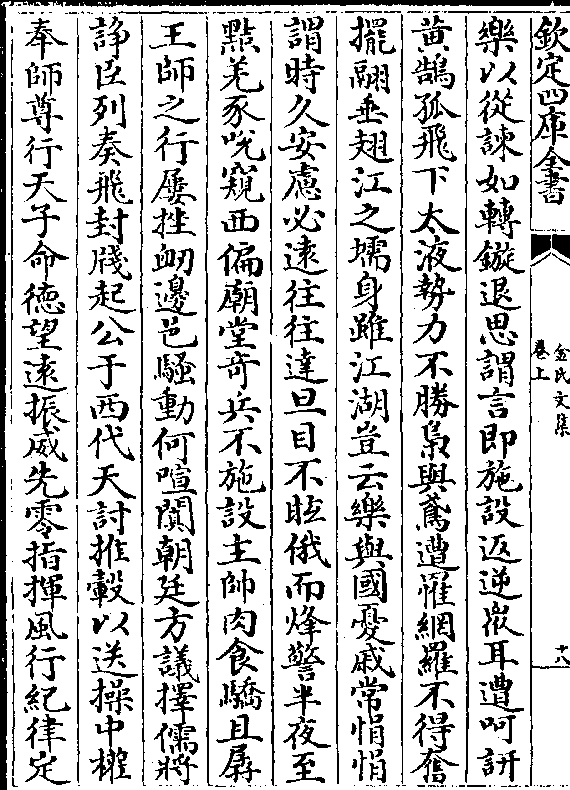 欽定四庫全書
金氏文集
卷上
十八
樂以從諫如轉鏇退思謂言即施設返逆嵗耳遭呵訝
黃鵠孤飛下太液勢力不勝梟與鳶遭罹網羅不得奮
擺翮垂翅江之壖身雖江湖豈云樂與國憂戚常悁悁
謂時久安慮必遠往往達旦目不眂俄而烽警半夜至
點羌豕吮窺西偏廟堂奇兵不施設主帥肉食驕且孱
王師之行屢挫衂邊邑騷動何喧闐朝廷方議擇儒將
諍臣列奏飛封牋起公于西代天討推轂以送操中權
奉師尊行天子命德望遠振威先零指揮風行紀律定